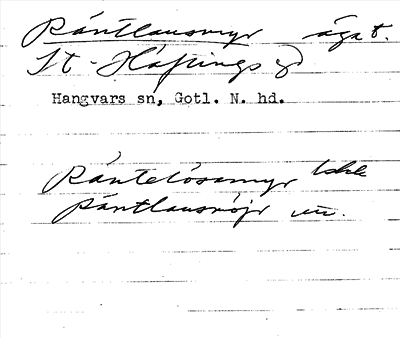 Räntlausmyr ägat.
St. Häftings gd
Hangvars sn, Gotl. N. hd.
Räntelösamyr lskk
Räntlausmöjr un.